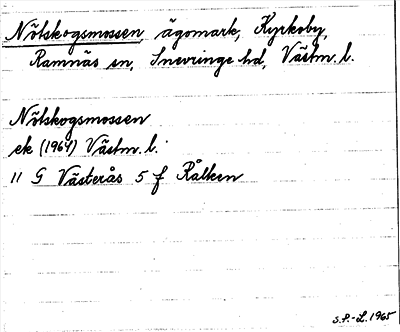 Nötskogsmossen, ägomark, Kyrkoby,
Ramnäs sn, Snevringe hd, Västm. l.
Nötskogsmossen
ek (1964) Västm. l.
11 G Västerås 5 f Rålken
S.P.-L. 1965